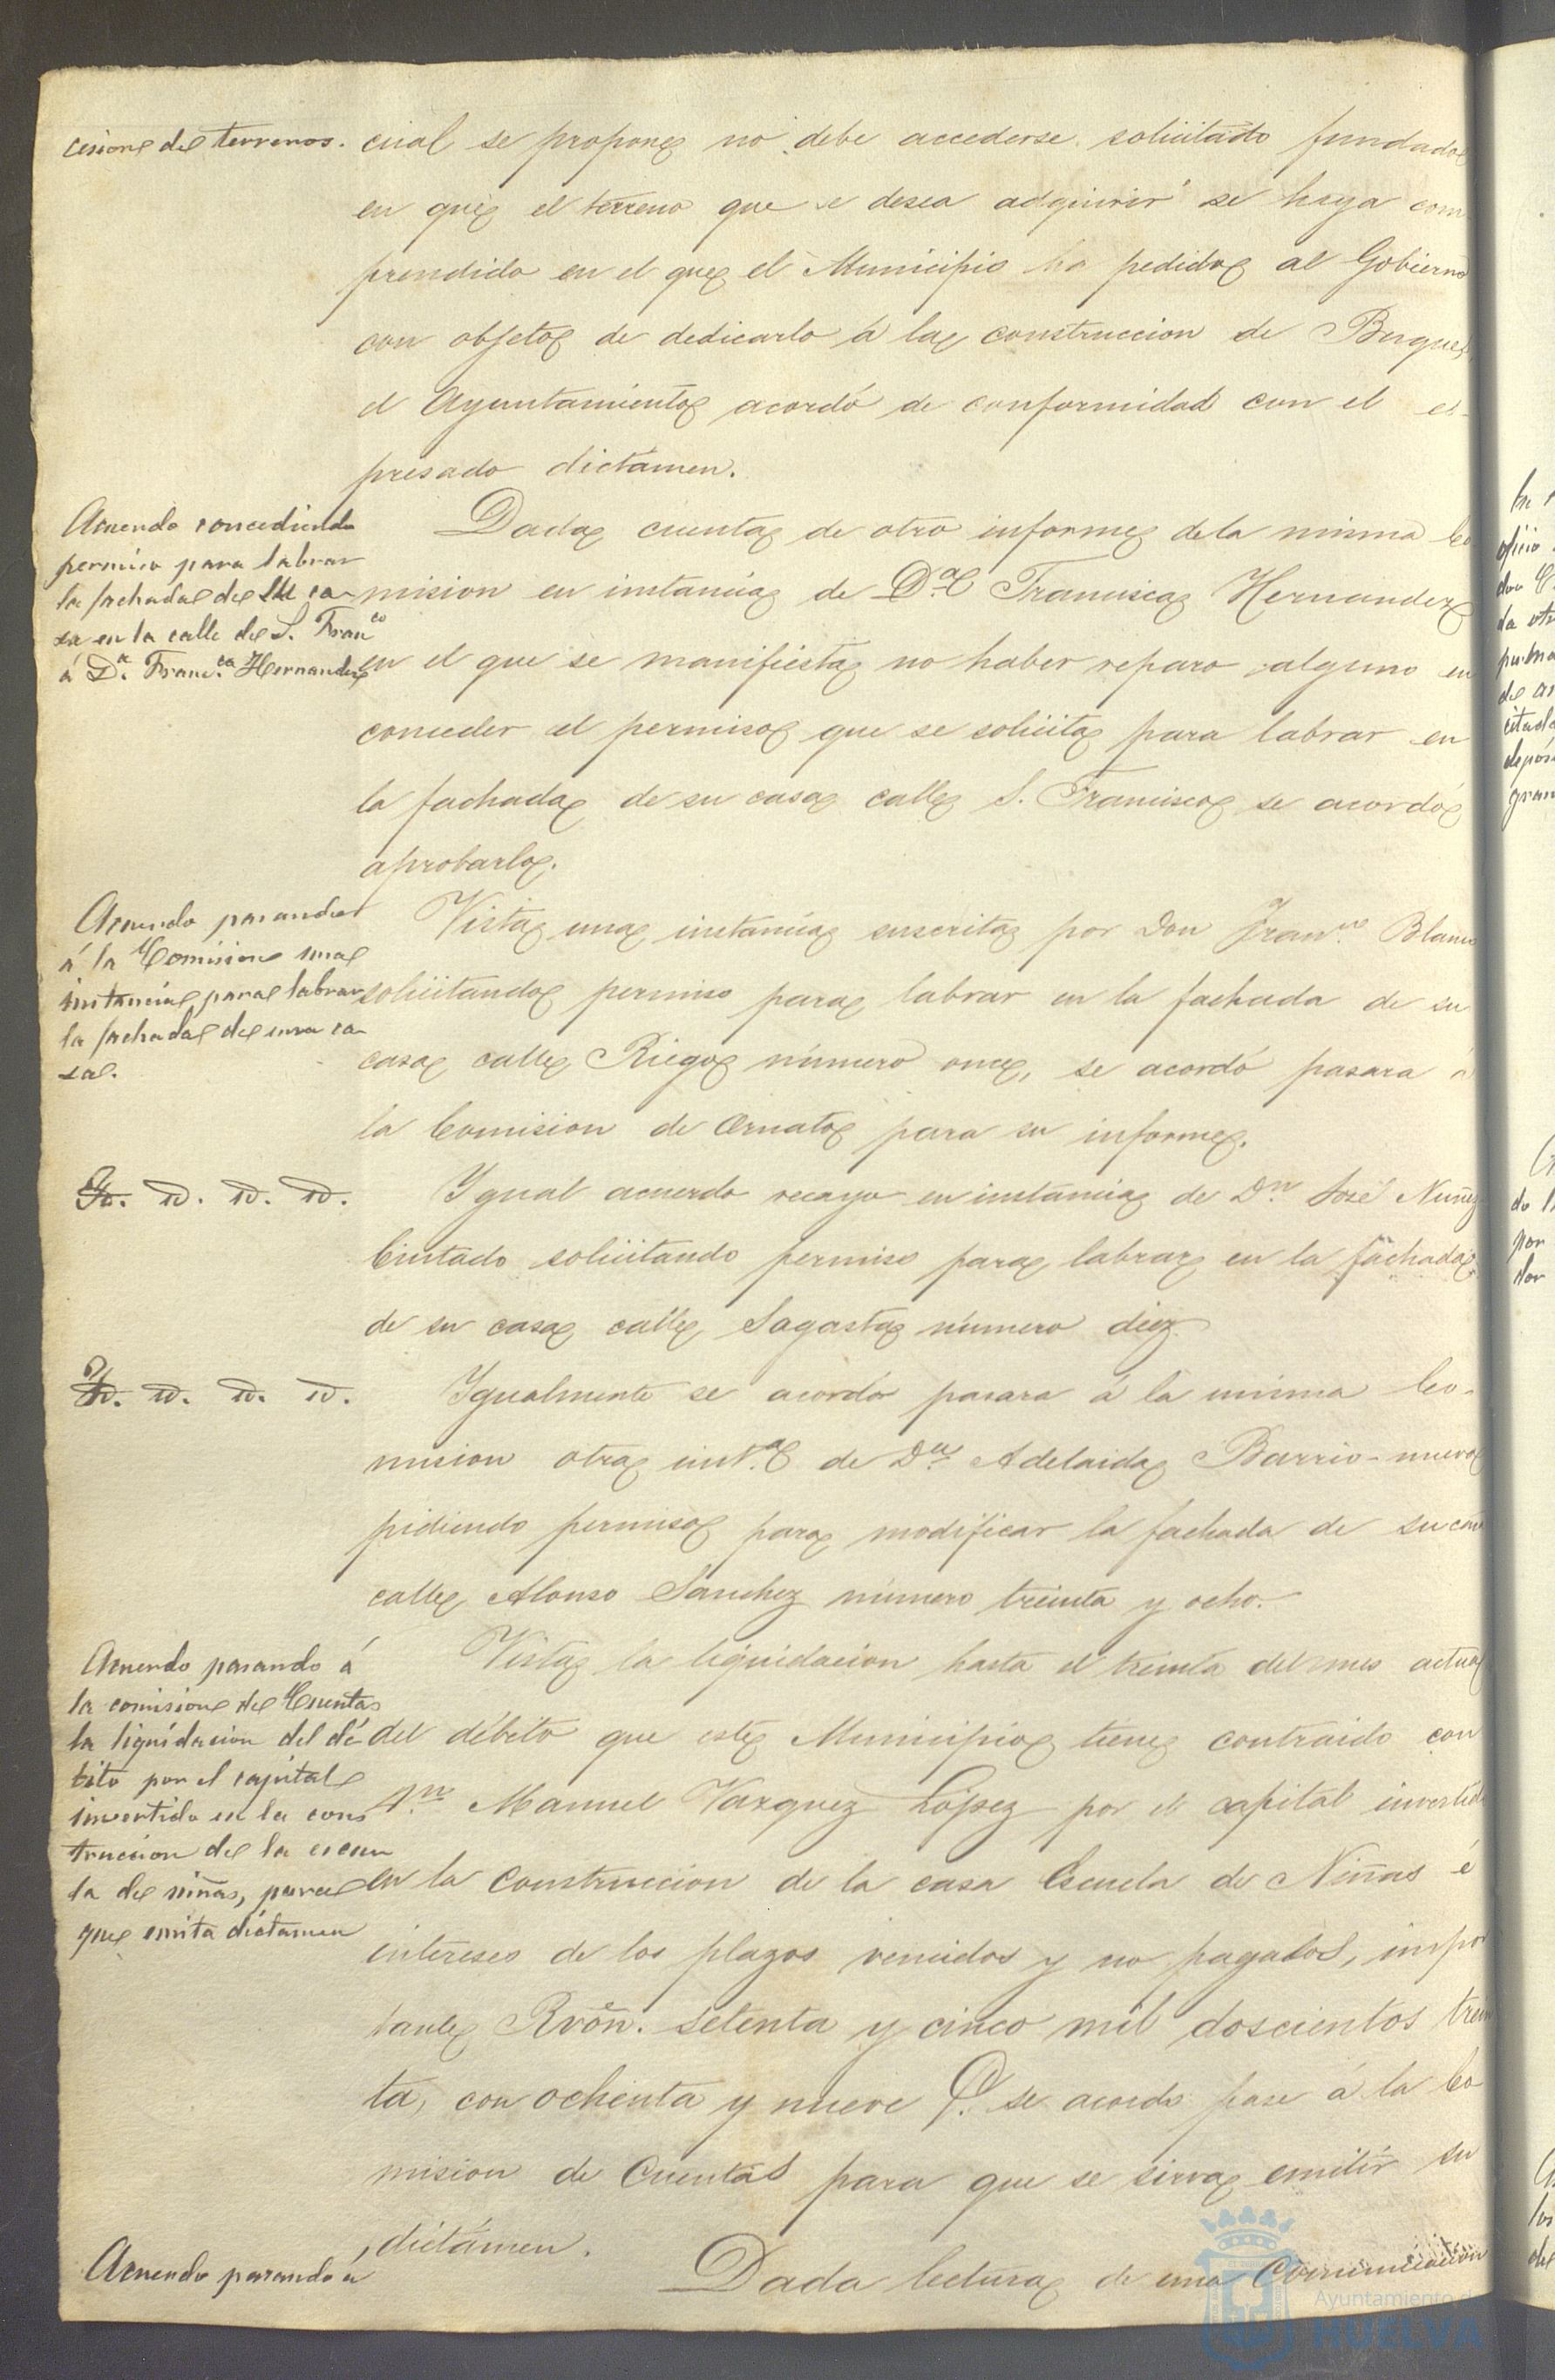 cesion de terrenos.
cual se propone no debe accederse solicitado fundado
en que el terreno que se desea adquirir se haya com
prendido en el que el Municipio ha pedido al Gobierno
con objeto de dedicarlo á la construccion de Buques
el Ayuntamiento acordó de conformidad con el es-
presado dictámen.
Acuerdo concediendo
permiso para labrar
la fachada de su ca-
sa en la calle de S. Fran^co
á D.^a Franc.^ca Hernandez
Dada cuenta de otro informe de la misma Co
mision en instancia de D.^a Francisca Hernandez
en el que se manifiesta no haber reparo alguno en
conceder el permiso que se solicita para labrar en
la fachada de su casa calle S. Francisco se acordó
aprobarlo.
Acuerdo pasando
á la Comision una
instancia para labrar
la fachada de una ca-
sa.
Vista una instancia suscrita por Don Fran^co Blanco
solicitando permiso para labrar en la fachada de su
casa calle Riego número once, se acordó pasara á
la Comision de Ornato para su informe.
Id. id. id. id.
Ygual acuerdo recayo en instancia de D.^n José Nuñez
Ciudado solicitando permiso para labrar en la fachada
de su casa calle Sagasta número diez
Id. id. id. id.
Ygualmente se acordó pasara á la misma Co-
mision otra inst.^a de D.^a Adelaida Barrio-nuevo
pidiendo permiso para modificar la fachada de su casa
calle Alonso Sanchez número treinta y ocho.
Acuerdo pasando á
la comision de Cuentas
la liquidacion del dé
bito por el capital
invertido en la cons
truccion de la escue
la de niñas, para
que emita dictamen
Vista la liquidacion hasta el treinta del mes actual
del débito que este Municipio tiene contraido con
D.^n Manuel Vazquez López por el capital invertido
en la construccion de la casa Escuela de Niñas é
intereses de los plazos vencidos y no pagados, impor
tante Rvón. setenta y cinco mil doscientos trein
ta, con ochenta y nueve C. se acordó pase á la Co
mision de Cuentas para que se sirva emitir su
dictámen.
Acuerdo pasando á
Dada lectura de una Comunicacion
Ayuntamiento de
HUELVA